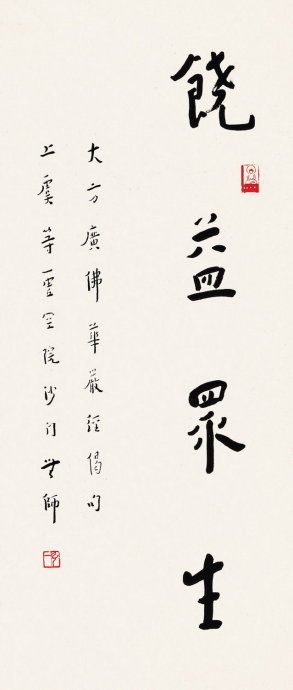 饒益眾生
大方廣佛華嚴經偈句
上虞等靈空院沙門師